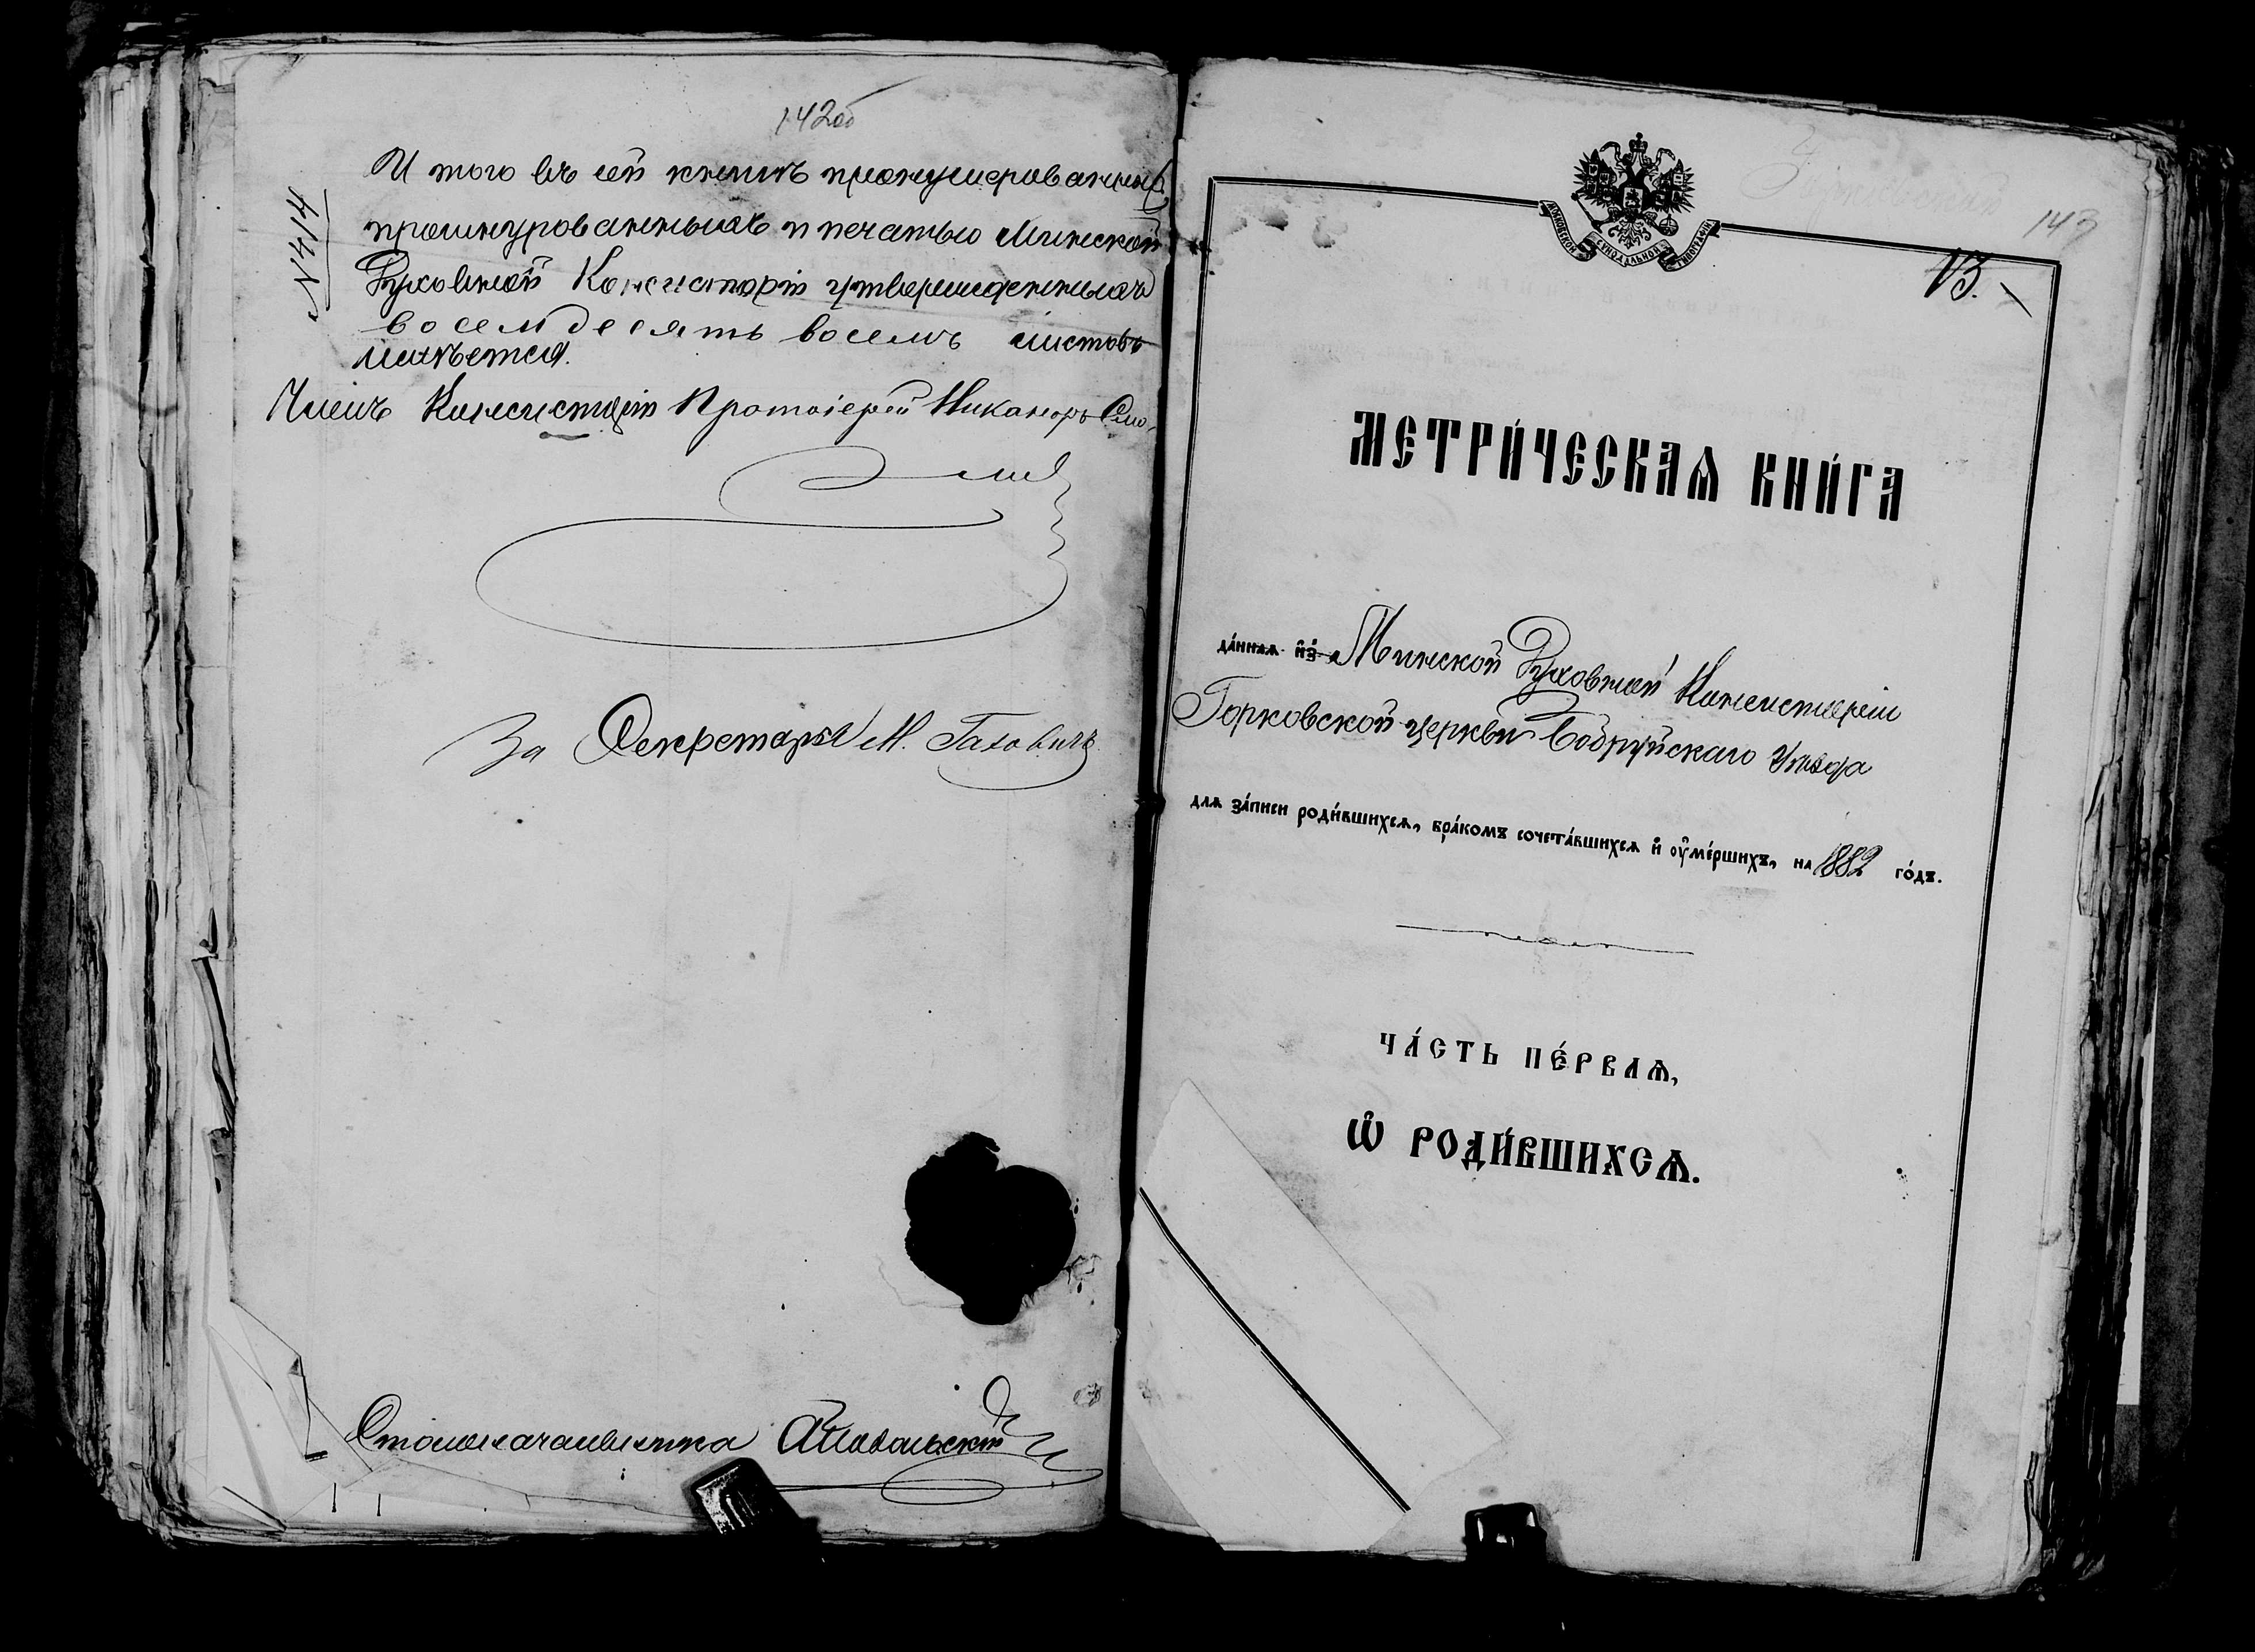 142об
N 414
И того въ сей книгѣ пронумерованныхъ
прошнурованныхъ и печатью Минской
Духовной Консисторіи утвержденныхъ
восемдесятъ восемь листовъ
имѣется.
Членъ Консисторіи Протоіерей Никаноръ Смо-
личъ
За Секретаря М.
Столоначальника
143
13.
МОСКОВСКОЙ СѴНОДАЛЬНОЙ ТИПОГРАФІИ
МЕТРИ́ЧЕСКАѦ КНИ́ГА
да́ннаѧ и҆з̾ Минской Духовной Консисторіи
Горковской церкви Бобруйскаго Уѣзда
длѧ за́писи роди́вшихсѧ, бра́комъ сочета́вшихсѧ и҆ ᲂу҆ме́ршихъ, на 1882 го́дъ.
ЧА́СТЬ ПЕ́РВАѦ,
Ѽ РОДИ́ВШИХСѦ.